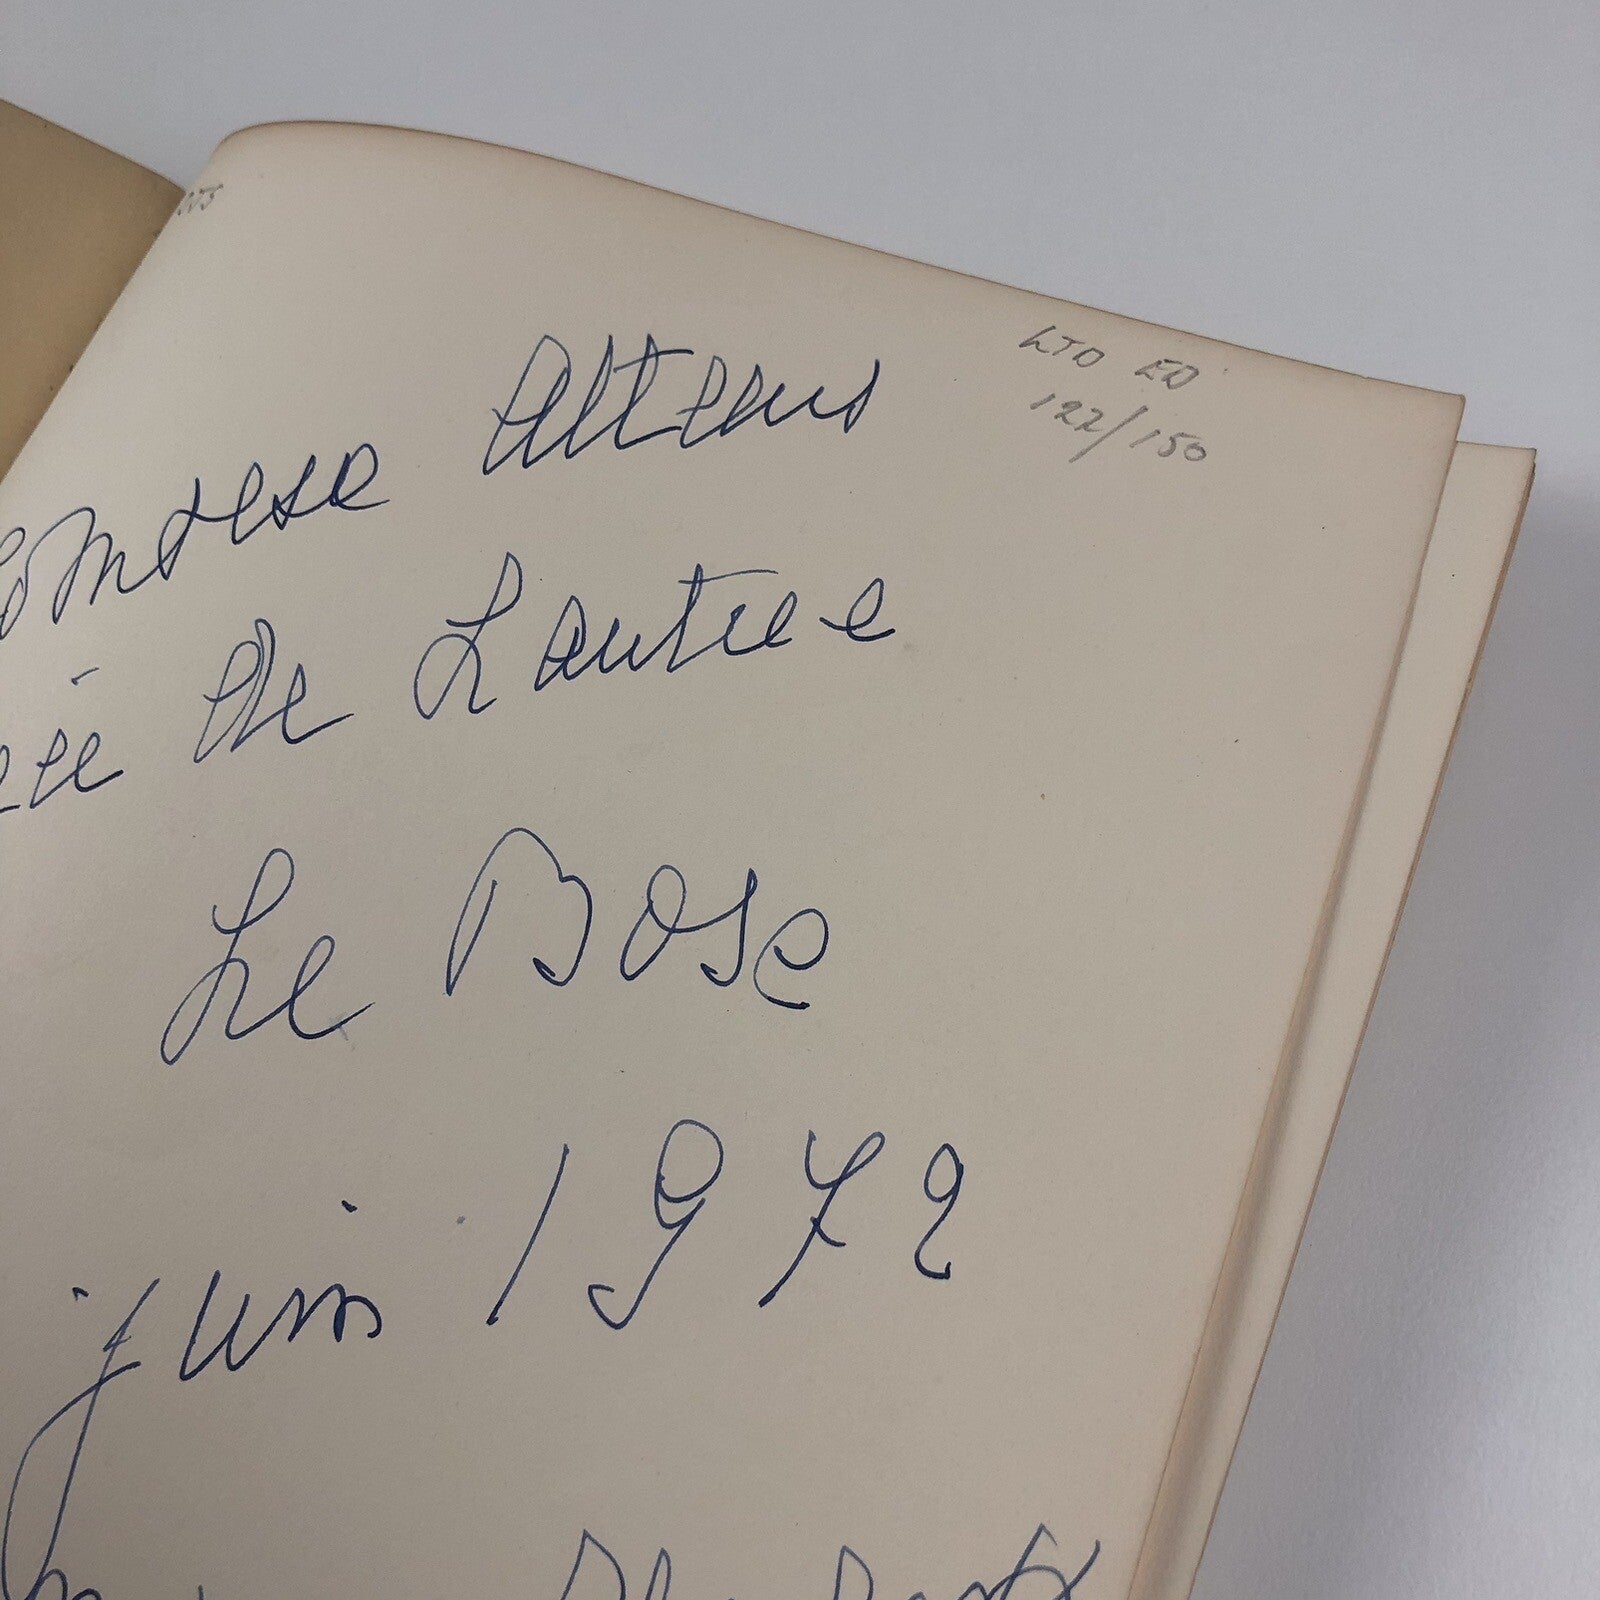 LTD ED
122/150
Comtesse Attems
née de Lautree
Le Bosc
juin 1972